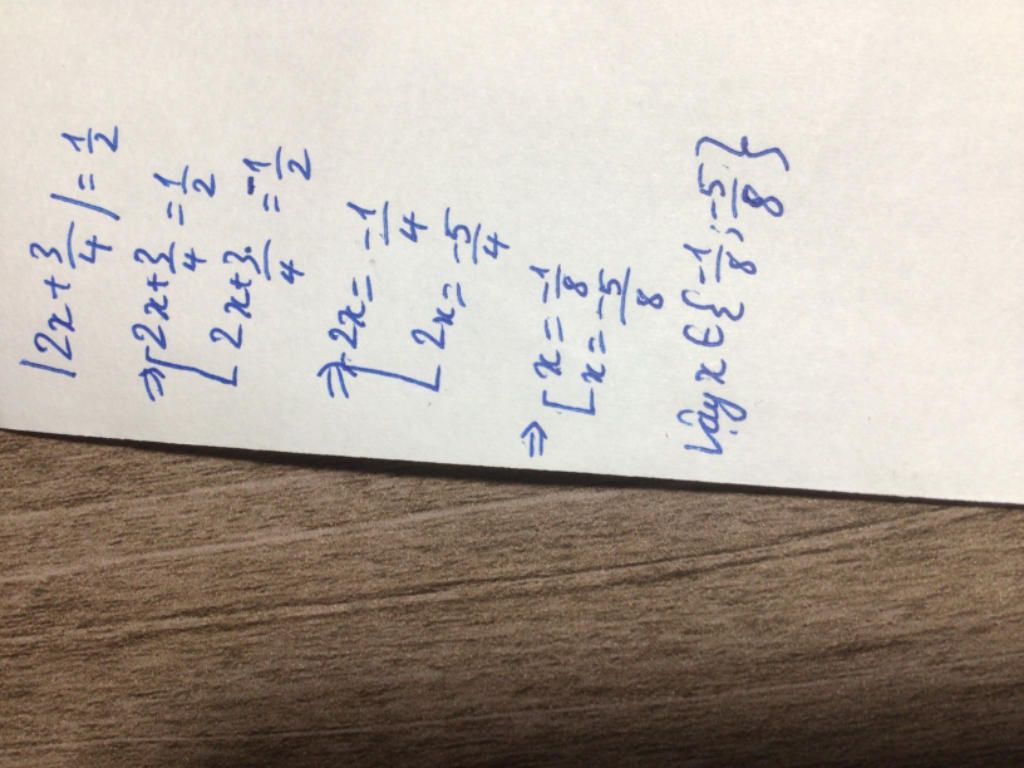 |2x + 3/4| = 1/2
⇒ [ 2x + 3/4 = 1/2
[ 2x + 3/4 = -1/2
⇒ [ 2x = -1/4
[ 2x = -5/4
⇒ [ x = -1/8
[ x = -5/8
Vậy x ∈ { -1/8 ; -5/8 }